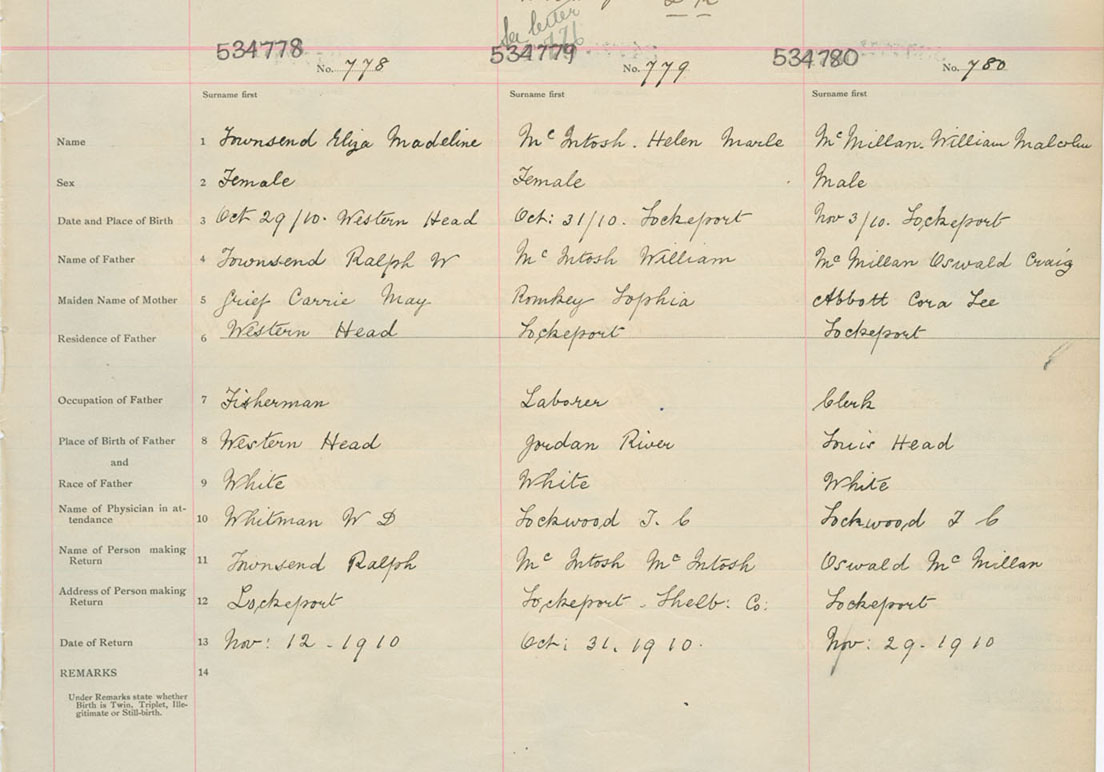 See letter
534778 534779 534780
No. 778 No. 779 No. 780
Surname first Surname first Surname first
Name 1 Townsend Eliza Madeline Mc Intosh. Helen Marle Mc Millan. William Malcolm
Sex 2 Female Female Male
Date and Place of Birth 3 Oct 29/10. Western Head Oct: 31/10. Lockeport Nov 3/10. Lockeport
Name of Father 4 Townsend Ralph W Mc Intosh William Mc Millan Oswald Craig
Maiden Name of Mother 5 Grief Carrie May Romkey Sophia Abbott Cora Lee
Residence of Father 6 Western Head Lockeport Lockeport
Occupation of Father 7 Fisherman Laborer Clerk
Place of Birth of Father 8 Western Head Jordan River Louis Head
and
Race of Father 9 White White White
Name of Physician in at-
tendance 10 Whitman W D Lockwood T. C Lockwood T C
Name of Person making
Return 11 Townsend Ralph Mc Intosh Mc Intosh Oswald Mc Millan
Address of Person making
Return 12 Lockeport Lockeport - Shelb: Co: Lockeport
Date of Return 13 Nov: 12 - 1910 Oct: 31. 1910. Nov: 29 - 1910
REMARKS 14
Under Remarks state whether
Birth is Twin, Triplet, Ille-
gitimate or Still-birth.